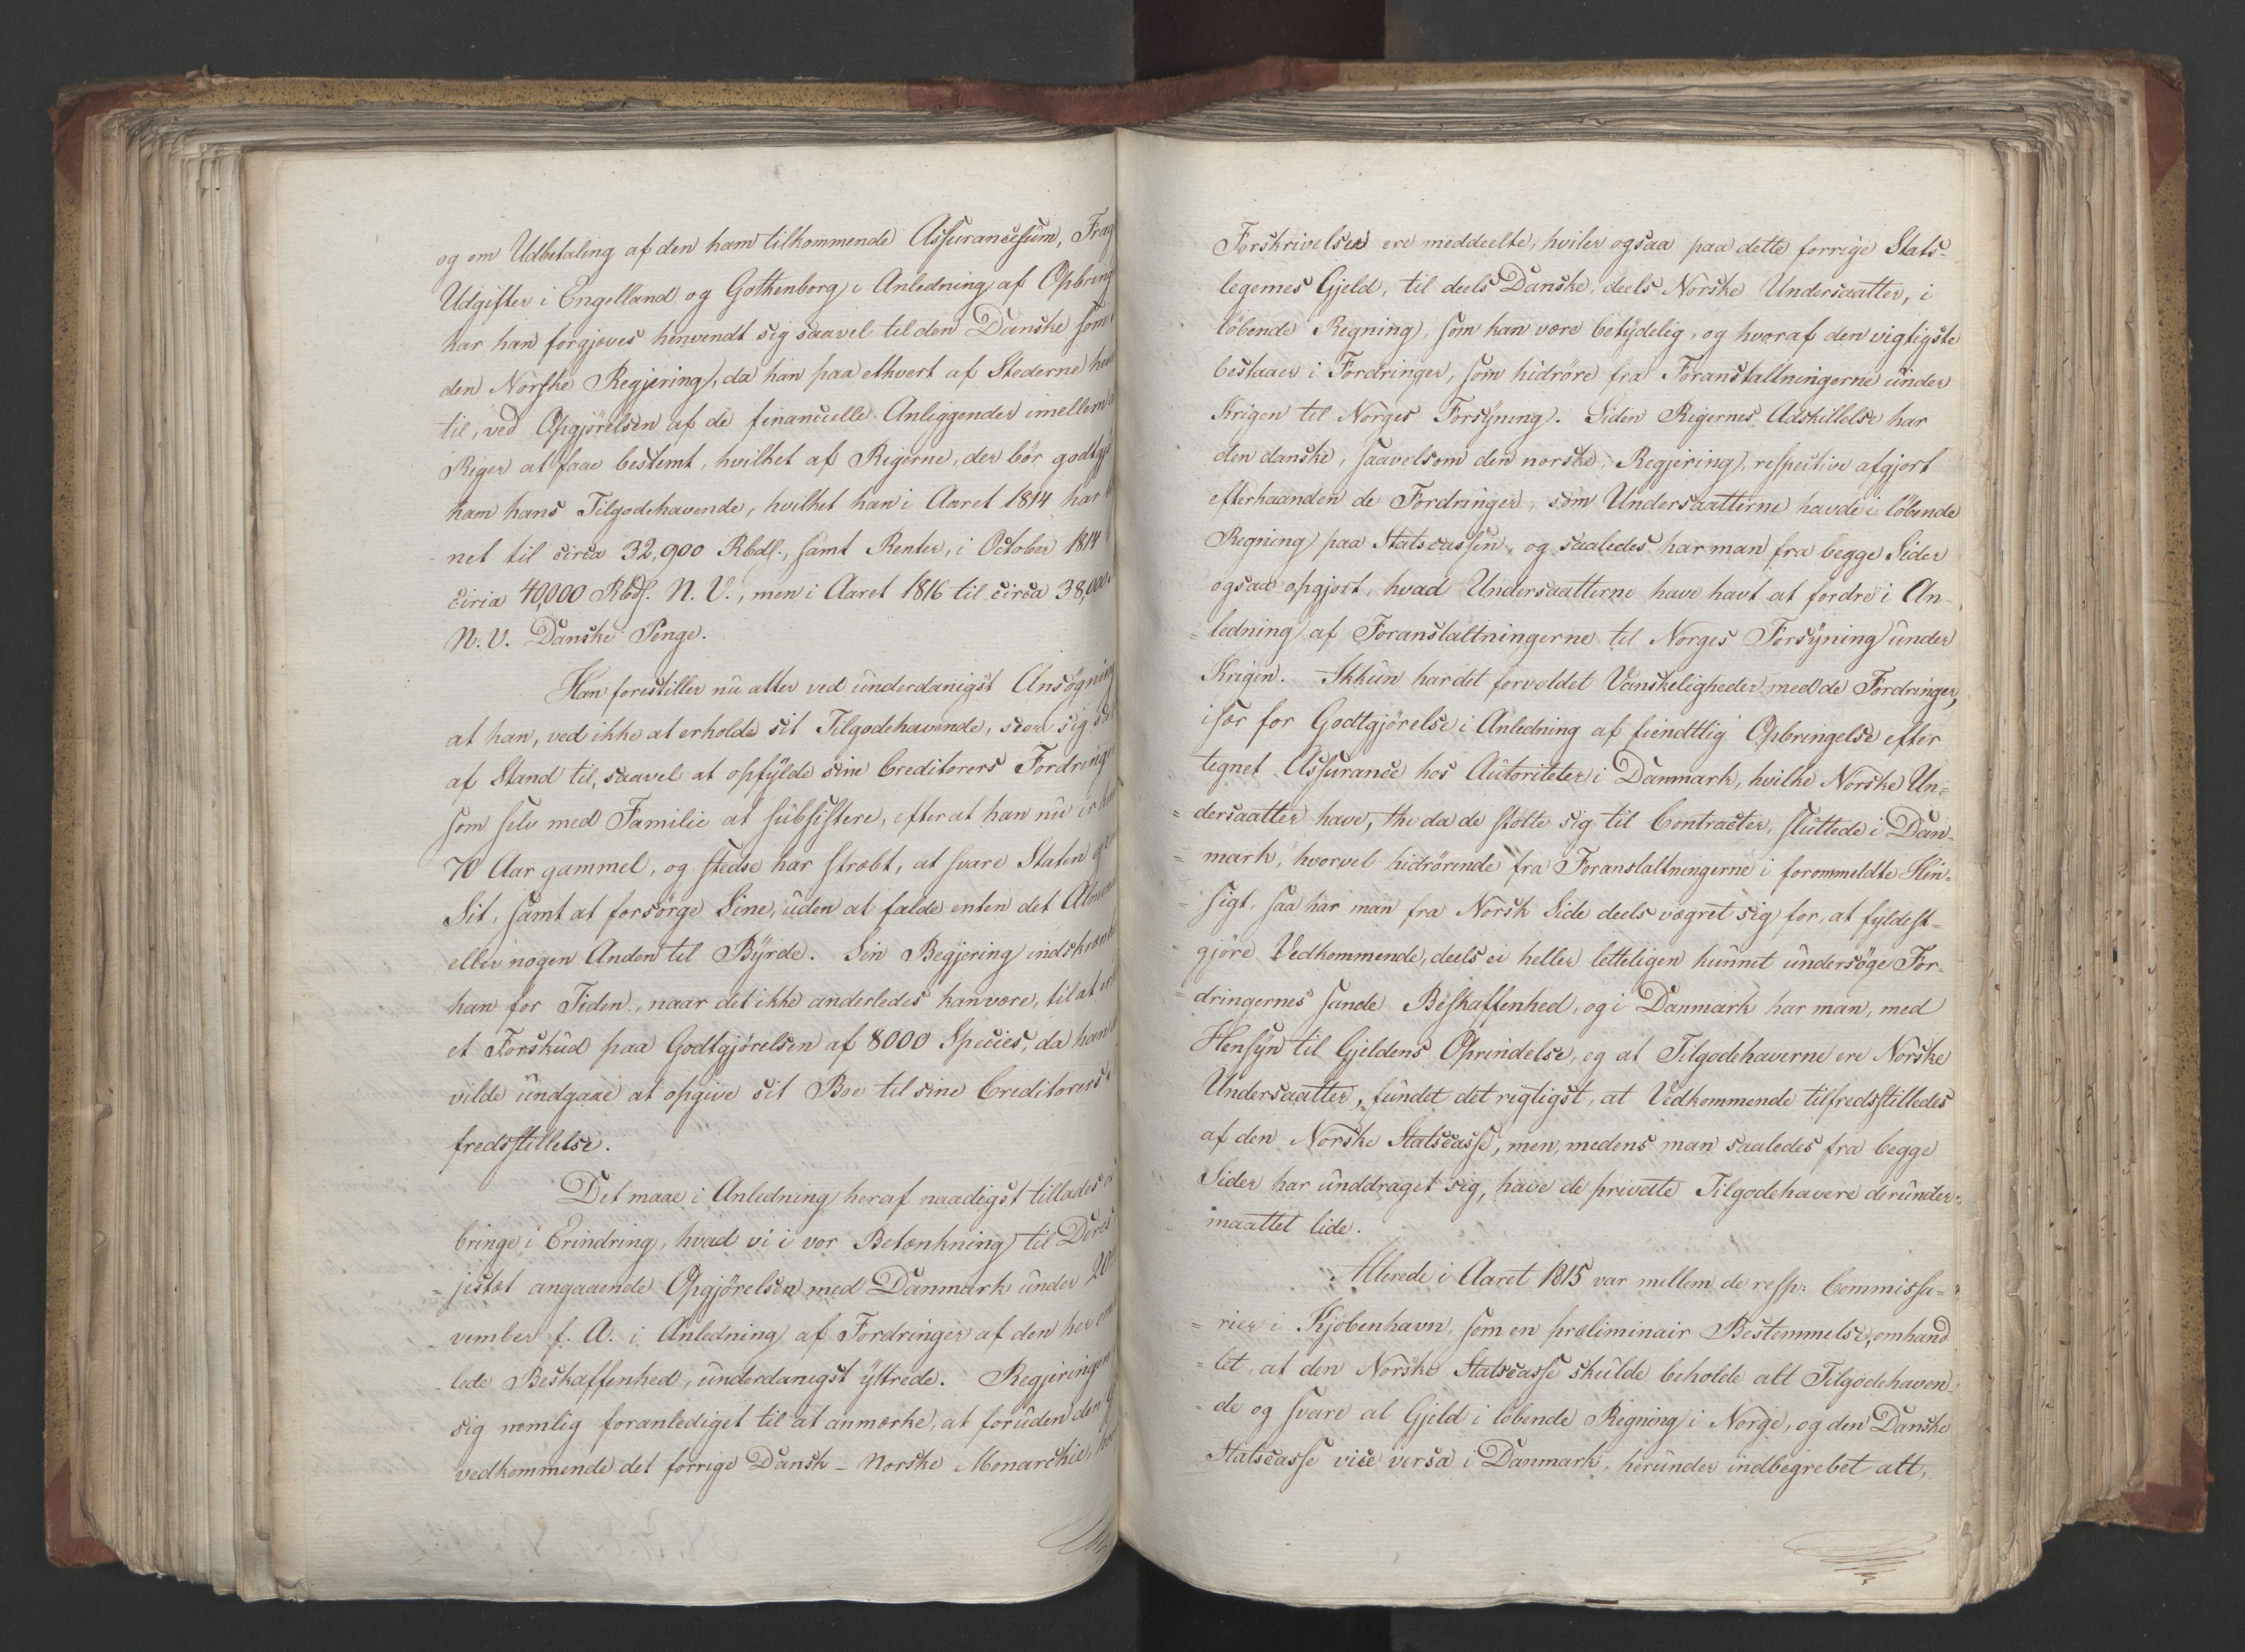 og om Udbetaling af den ham tilkommende Assurancesum, Frag
Udgifter i Engelland og Gothenborg i Anledning af Opbring
har han forgjæves henvendt sig saavel til den Danske som
den Norske Regjering, da han paa ethvert af Stederne
til, ved Opgjørelsen af de financielle Anliggender imellem
Riger at faae bestemt, hvilket af Rigerne, der bör godtgj
ham hans Tilgodehavende, hvilket han i Aaret 1814 har
net til circa 32,900 Rbdl., samt Renter, i October 1814
circa 40,000 Rbdl. N. V., men i Aaret 1816 til circa 38,000
N. V. Danske Penge.
Han forestiller nu atter ved underdanigst Ansøgning
at han, ved ikke at erholde sit Tilgodehavende, seer sig
af Stand til, saavel at opfylde sine Creditorers Fordringe
som selv med Familie at subsistere, efter at han nu er
70 Aar gammel, og stedse har stræbt, at svare Staten
Sit, samt at forsörge Sine, uden at falde enten det Almin
eller nogen Anden til Byrde. Sin Begjering indskrænk
han for Tiden, naar det ikke anderledes kan være, til at
et Forskud paa Godtgjørelsen af 8000 Species, da han
vilde undgaae at opgive sit Boe til sine Creditorers
fredsstillelse.
Det maae i Anledning heraf naadigst tillades
bringe i Erindring, hvad vi i vor Betænkning til Deres
= jestæt angaaende Opgjörelsen med Danmark under 20
vember f. A. i Anledning af Fordringer af den her om
- lede Beskaffenhed, underdanigst yttrede. Regjeringen
sig nemlig foranlediget til at anmærke, at foruden den
vedkommende det forrige Dansk - Norske Monarchie,
Forskrivelser ere meddeelte, hviler ogsaa paa dette forrige Stats-
legemes Gjeld, til deels Danske, deels Norske Undersaatter, i
löbende Regning, som kan være betydelig, og hvoraf den vigtigste
bestaaer i Fordringer, som hidröre fra Foranstaltningerne under
Krigen til Norges Forsyning. Siden Rigernes Adskillelse har
den danske, saavelsom den norske, Regjering, respective afgjort
efterhaanden de Fordringer, som Undersaatterne havde i löbende
Regning paa Statscassen, og saaledes har man fra begge Sider
ogsaa opgjort, hvad Undersaatterne have havt at fordre i An-
= ledning af Foranstaltningerne til Norges Forsyning under
Krigen. Ikkun har det forvoldet Vanskeligheder med de Fordringer,
især for Godtgjörelse i Anledning af fiendtlig Opbringelse efter
tegnet Assurance hos Autoriteter i Danmark, hvilke Norske Un=
= dersaatter have, thi da de støtte sig til Contracter, sluttede i Dan-
= mark, hvorvel hidrörende fra Foranstaltningerne i forommeldte Hen-
- sigt, saa har man fra Norsk Side deels vægret sig for, at fyldest-
= gjöre Vedkommende, deels ei heller letteligen kunnet undersöge For-
= dringernes sande Beskaffenhed, og i Danmark har man, med
Hensyn til Gjeldens Oprindelse, og at Tilgodehaverne ere Norske
Undersaatter, fundet det rigtigst, at Vedkommende tilfredsstilledes
af den Norske Statscasse, men, medens man saaledes fra begge
Sider har unddraget sig, have de private Tilgodehavere derunder
maattet lide.
Allerede i Aaret 1815 var mellem de resp: Commissa=
= rier i Kjøbenhavn, som en præliminair Bestemmelse, omhand
= let, at den Norske Statscasse skulde beholde alt Tilgodehaven
- de og svare al Gjeld i löbende Regning i Norge, og den Danske
Statscasse vice versa i Danmark, herunder indbegrebet alt,